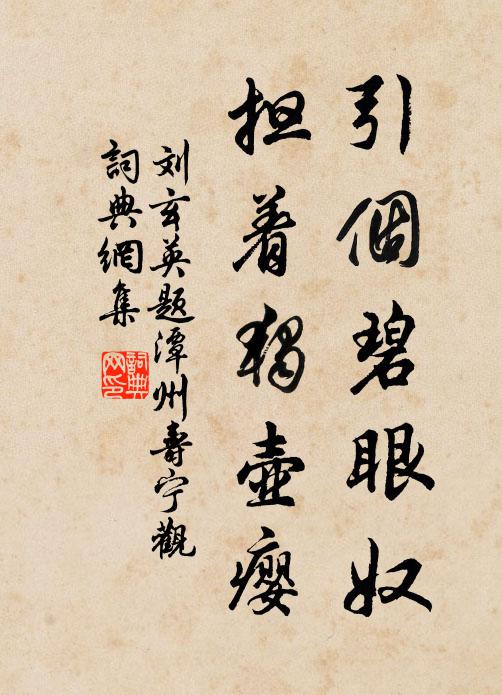 引個碧眼奴
担着獨壺癭
刘玄英题潭州壽宁觀
詞典網集
詞典网印